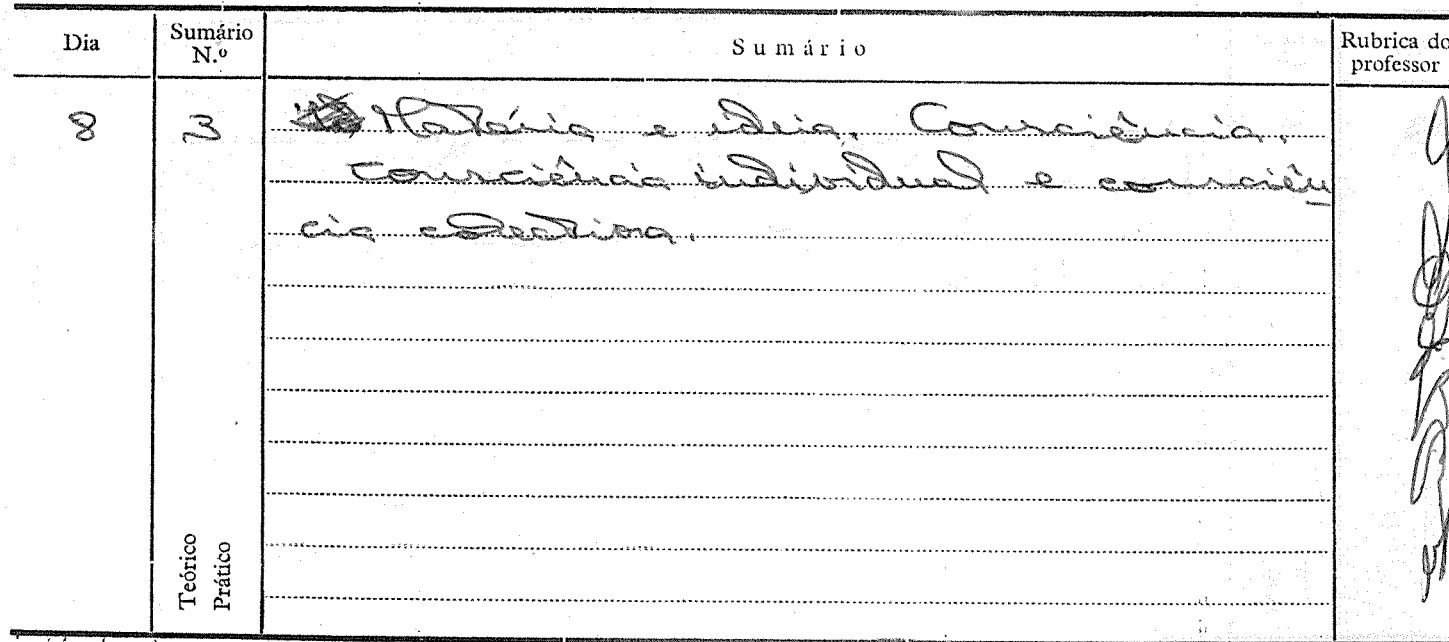 Dia
Sumário
N.º
Sumário
Rubrica do
professor
8
3
Matéria e ideia. Consciência.
Consciência individual e consciên
cia colectiva.
Teórico
Prático